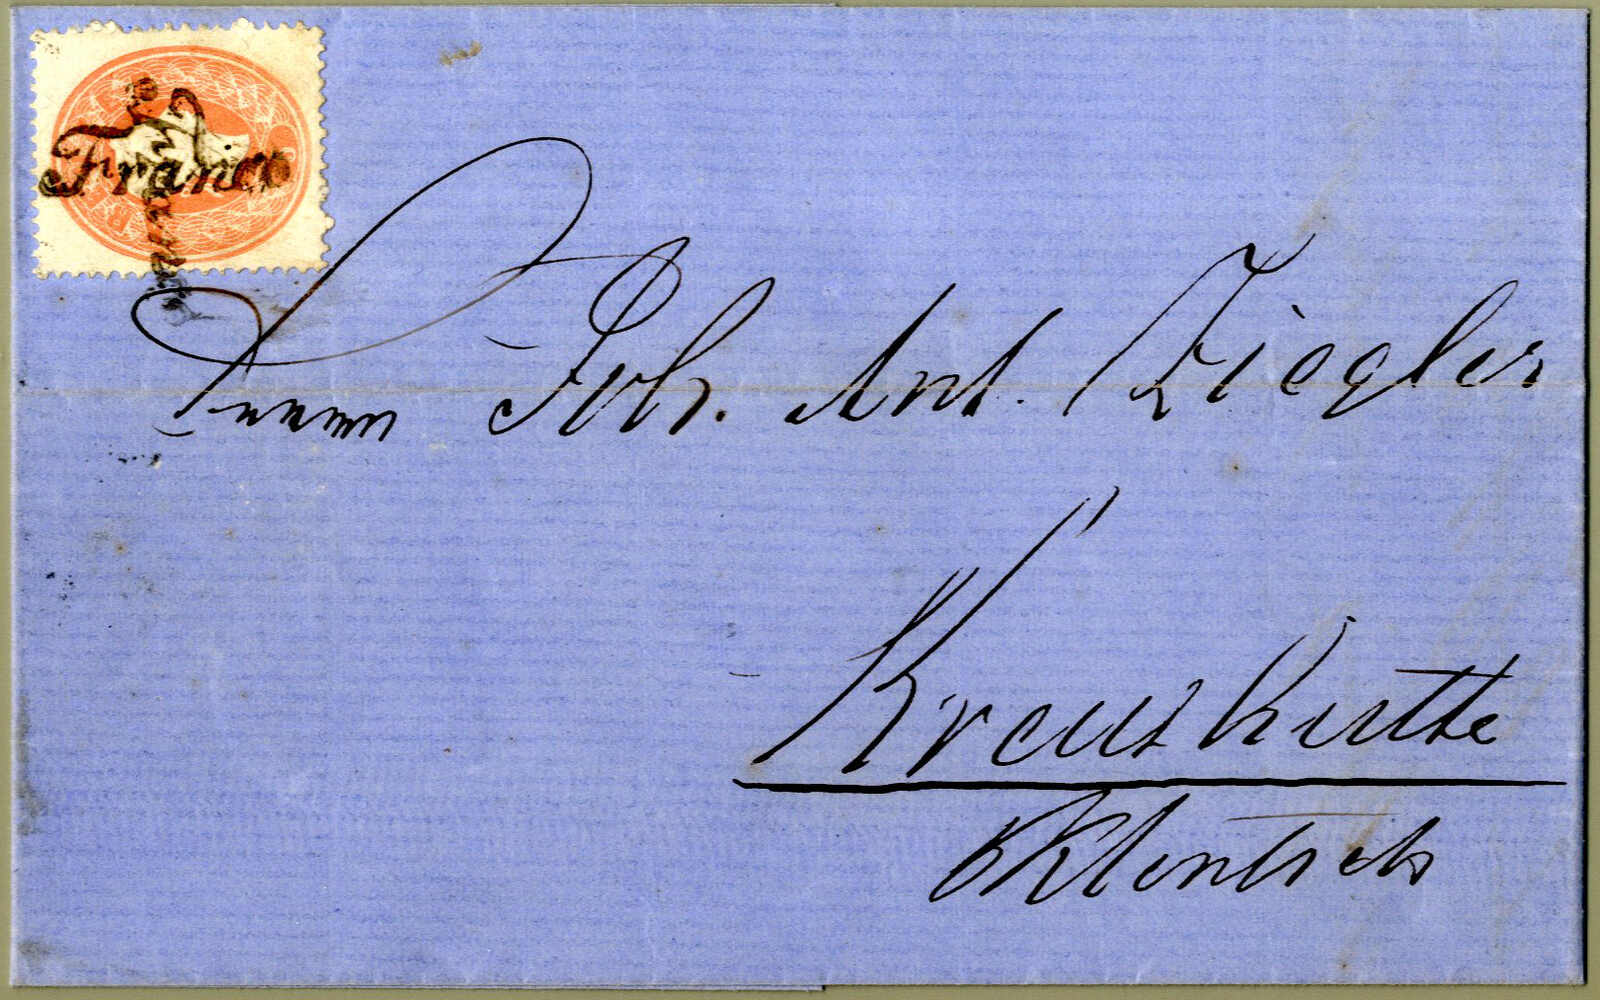 Franco
Herrn Joh. Ant. Ziegler
Kreuzhütte
b/Klentsch